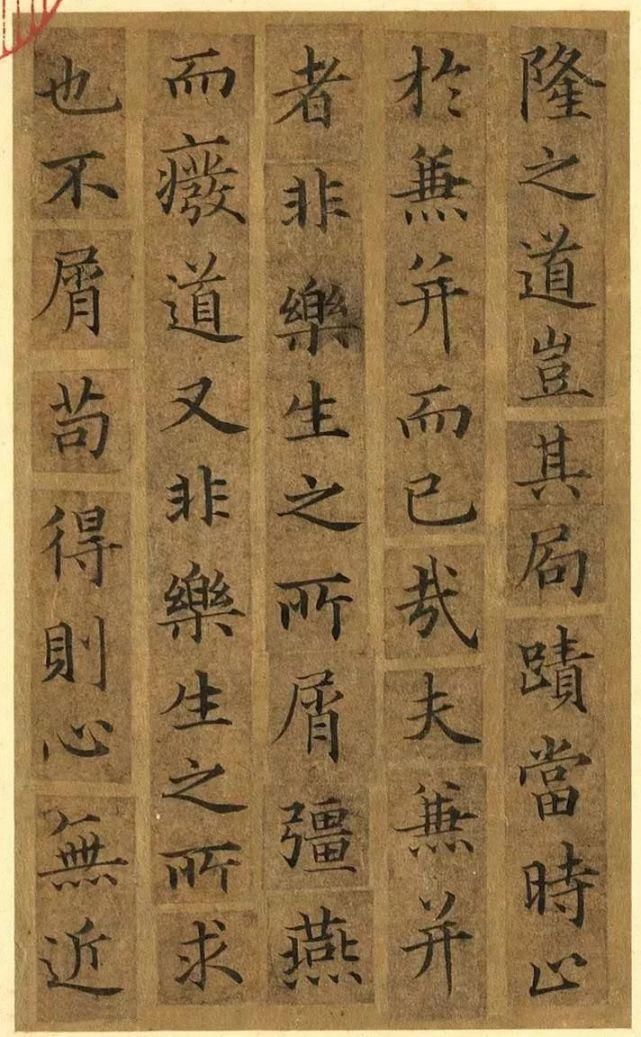 隆之道豈其局蹟當時止
於兼并而已㢤夫兼并
者非樂生之所屑彊燕
而癈道又非樂生之所求
也不屑苟得則心無近